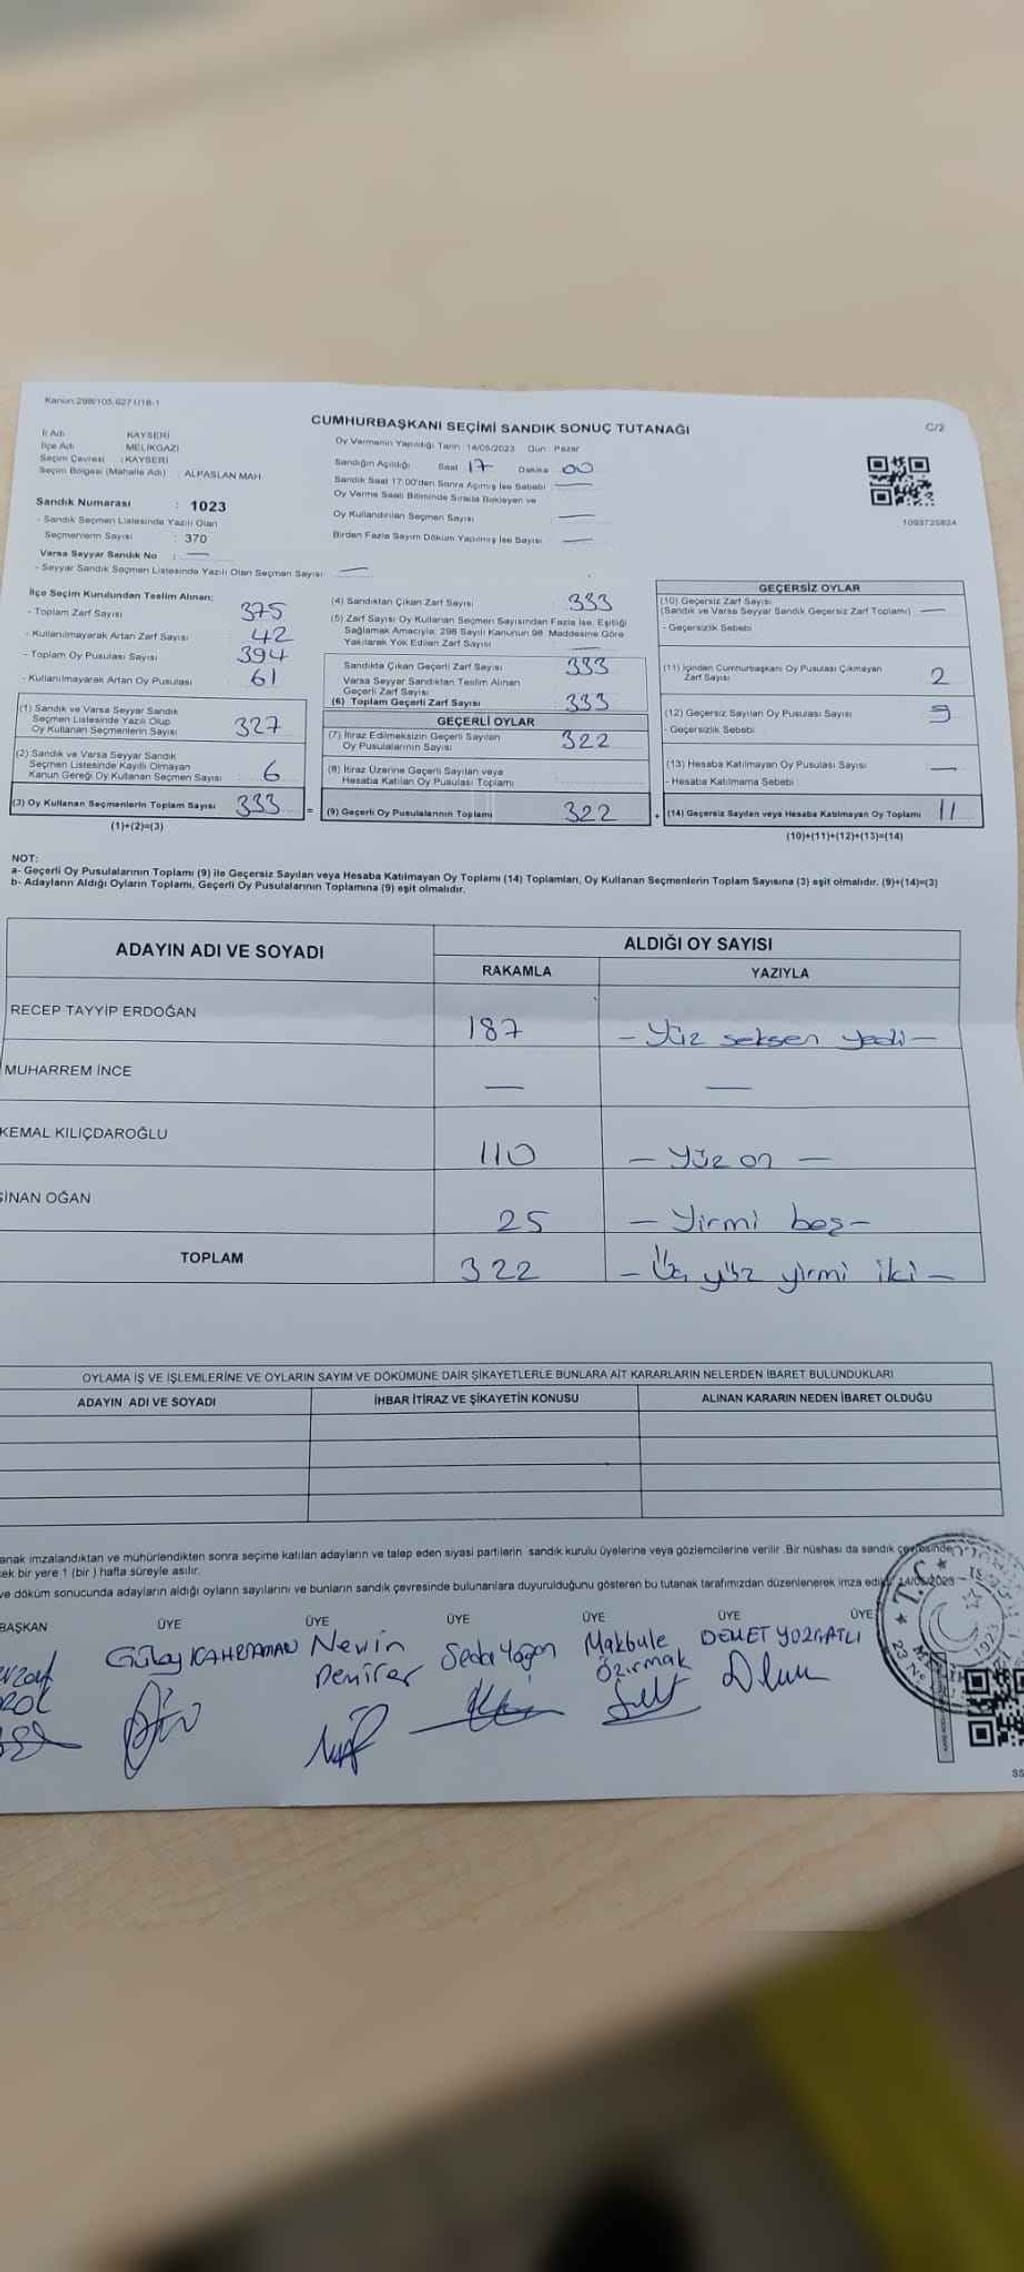 Kanun:298/105,6271/18-1
CUMHURBAŞKANI SEÇİMİ SANDIK SONUÇ TUTANAĞI
C/2
İl Adı : KAYSERİ
İlçe Adı : MELİKGAZİ
Seçim Çevresi : KAYSERİ
Seçim Bölgesi (Mahalle Adı) : ALPASLAN MAH.
Sandık Numarası : 1023
- Sandık Seçmen Listesinde Yazılı Olan
Seçmenlerin Sayısı : 370
Varsa Seyyar Sandık No : —
- Seyyar Sandık Seçmen Listesinde Yazılı Olan Seçmen Sayısı —
Oy Vermenin Yapıldığı Tarih: 14/05/2023 Gün: Pazar
Sandığın Açıldığı Saat 17 Dakika 00
Sandık Saat 17:00'den Sonra Açılmış İse Sebebi —
Oy Verme Saati Bitiminde Sırada Bekleyen ve
Oy Kullandırılan Seçmen Sayısı —
Birden Fazla Sayım Döküm Yapılmış İse Sayısı —
1093725824
İlçe Seçim Kurulundan Teslim Alınan;
- Toplam Zarf Sayısı 375
- Kullanılmayarak Artan Zarf Sayısı 42
- Toplam Oy Pusulası Sayısı 394
- Kullanılmayarak Artan Oy Pusulası 61
(1) Sandık ve Varsa Seyyar Sandık
Seçmen Listesinde Yazılı Olup
Oy Kullanan Seçmenlerin Sayısı 327
(2) Sandık ve Varsa Seyyar Sandık
Seçmen Listesinde Kayıtlı Olmayan
Kanun Gereği Oy Kullanan Seçmen Sayısı 6
(3) Oy Kullanan Seçmenlerin Toplam Sayısı 333
(1)+(2)=(3)
(4) Sandıktan Çıkan Zarf Sayısı 333
(5) Zarf Sayısı Oy Kullanan Seçmen Sayısından Fazla İse, Eşitliği
Sağlamak Amacıyla, 298 Sayılı Kanunun 98. Maddesine Göre
Yakılarak Yok Edilen Zarf Sayısı —
Sandıkta Çıkan Geçerli Zarf Sayısı 333
Varsa Seyyar Sandıktan Teslim Alınan
Geçerli Zarf Sayısı
(6) Toplam Geçerli Zarf Sayısı 333
GEÇERLİ OYLAR
(7) İtiraz Edilmeksizin Geçerli Sayılan
Oy Pusulalarının Sayısı 322
(8) İtiraz Üzerine Geçerli Sayılan veya
Hesaba Katılan Oy Pusulası Toplamı
= (9) Geçerli Oy Pusulalarının Toplamı 322
GEÇERSİZ OYLAR
(10) Geçersiz Zarf Sayısı
(Sandık ve Varsa Seyyar Sandık Geçersiz Zarf Toplamı) —
- Geçersizlik Sebebi
(11) İçinden Cumhurbaşkanı Oy Pusulası Çıkmayan
Zarf Sayısı 2
(12) Geçersiz Sayılan Oy Pusulası Sayısı 9
- Geçersizlik Sebebi
(13) Hesaba Katılmayan Oy Pusulası Sayısı —
- Hesaba Katılmama Sebebi
+ (14) Geçersiz Sayılan veya Hesaba Katılmayan Oy Toplamı 11
(10)+(11)+(12)+(13)=(14)
NOT:
a- Geçerli Oy Pusulalarının Toplamı (9) ile Geçersiz Sayılan veya Hesaba Katılmayan Oy Toplamı (14) Toplamları, Oy Kullanan Seçmenlerin Toplam Sayısına (3) eşit olmalıdır. (9)+(14)=(3)
b- Adayların Aldığı Oyların Toplamı, Geçerli Oy Pusulalarının Toplamına (9) eşit olmalıdır.
ADAYIN ADI VE SOYADI
ALDIĞI OY SAYISI
RAKAMLA YAZIYLA
RECEP TAYYİP ERDOĞAN 187 - Yüz seksen yedi -
MUHARREM İNCE — —
KEMAL KILIÇDAROĞLU 110 - Yüz on -
SİNAN OĞAN 25 - Yirmi beş -
TOPLAM 322 - Üç yüz yirmi iki -
OYLAMA İŞ VE İŞLEMLERİNE VE OYLARIN SAYIM VE DÖKÜMÜNE DAİR ŞİKAYETLERLE BUNLARA AİT KARARLARIN NELERDEN İBARET BULUNDUKLARI
ADAYIN ADI VE SOYADI İHBAR İTİRAZ VE ŞİKAYETİN KONUSU ALINAN KARARIN NEDEN İBARET OLDUĞU
anak imzalandıktan ve mühürlendikten sonra seçime katılan adayların ve talep eden siyasi partilerin sandık kurulu üyelerine veya gözlemcilerine verilir. Bir nüshası da sandık çevresinde
ek bir yere 1 (bir) hafta süreyle asılır.
ve döküm sonucunda adayların aldığı oyların sayılarını ve bunların sandık çevresinde bulunanlara duyurulduğunu gösteren bu tutanak tarafımızdan düzenlenerek imza edildi 14/05/2023
BAŞKAN ÜYE ÜYE ÜYE ÜYE ÜYE ÜYE
Gülay KAHRAMAN
Nevin
Demirer
Seda Yağan
Makbule
Özırmak
DEMET YOZGATLI
T.C.
1923